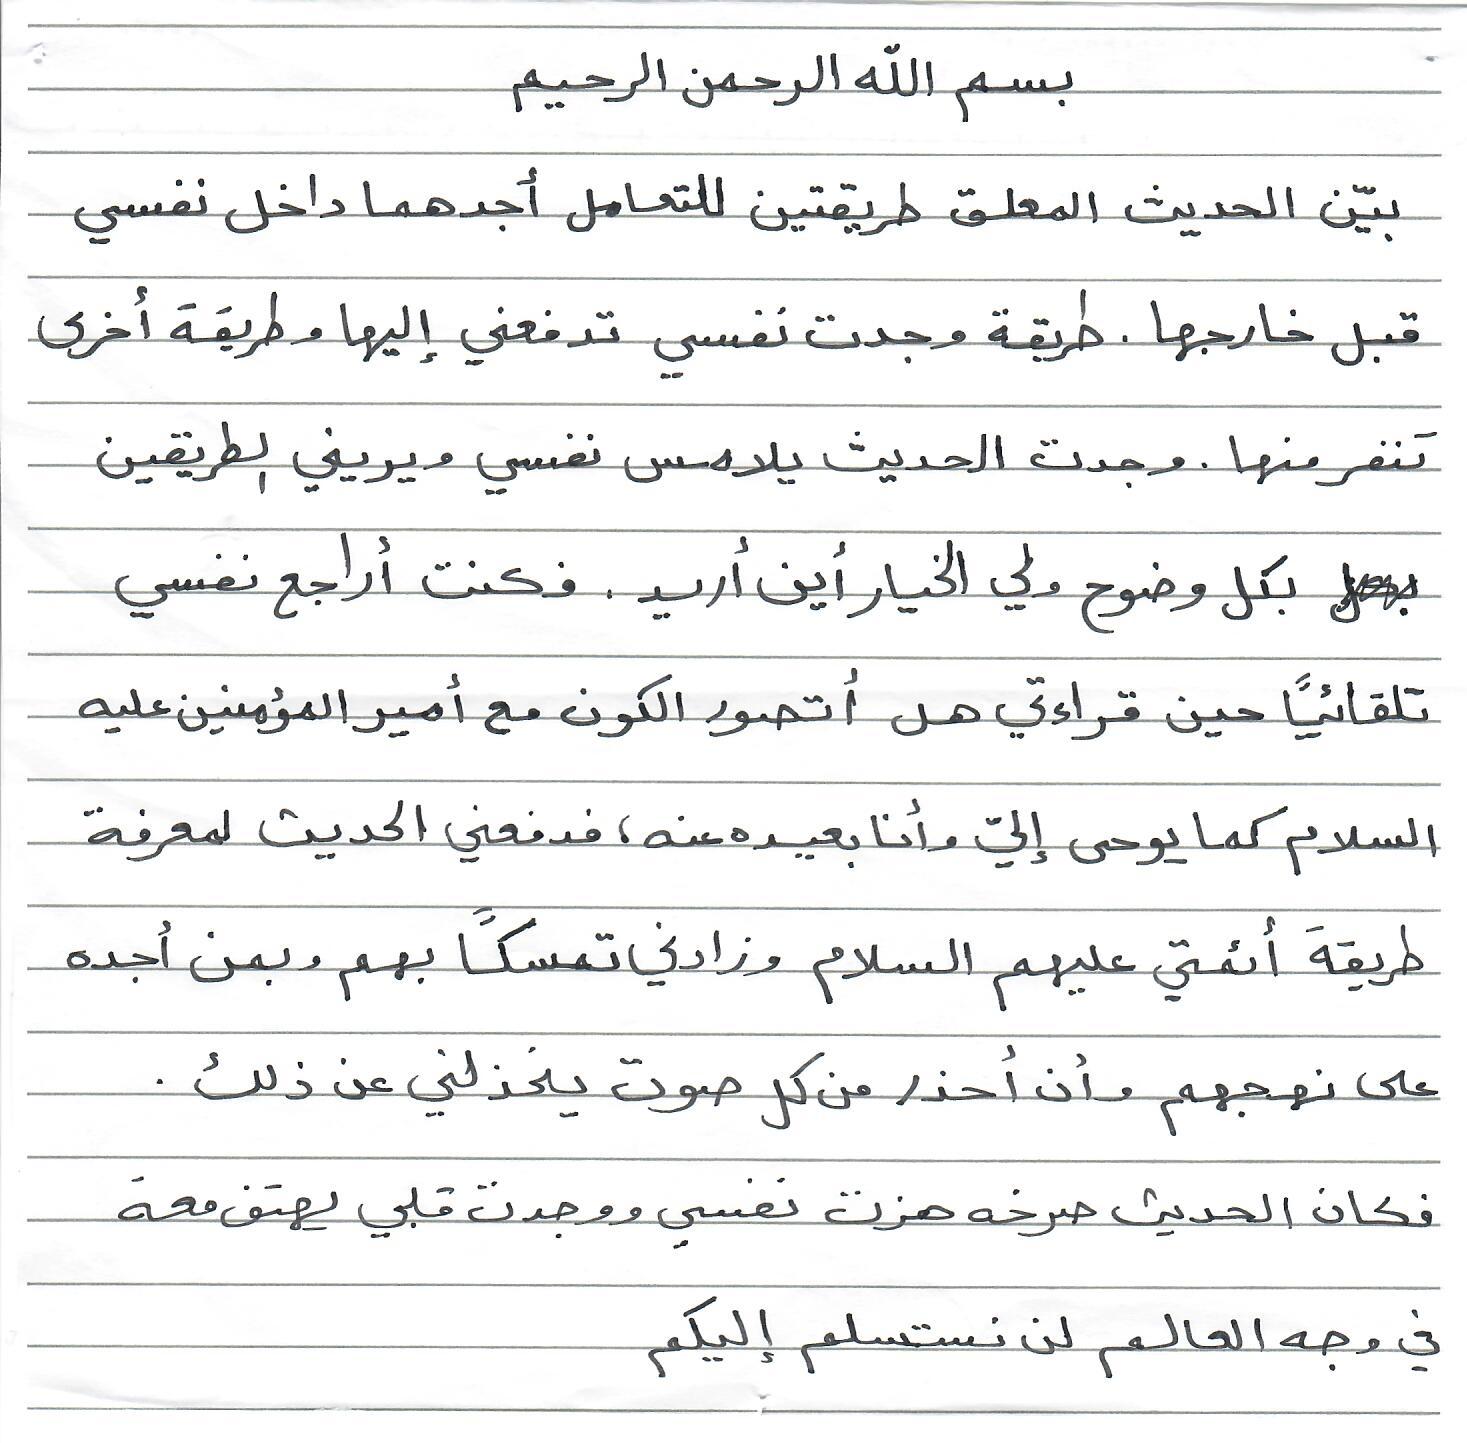 بسم الله الرحمن الرحيم
بيّن الحديث المعلق طريقتين للتعامل أجدهما داخل نفسي
قبل خارجها. طريقة وجدت نفسي تدفعني إليها وطريقة أخرى
تنفر منها. وجدت الحديث يلامس نفسي ويريني الطريقين
بكل وضوح ولي الخيار أين أريد. فكنت أراجع نفسي
تلقائيًا حين قراءتي هل أتصور الكون مع أمير المؤمنين عليه
السلام كما يوحى إليّ وأنا بعيده عنه، فدفعني الحديث لمعرفة
طريقة أئمتي عليهم السلام وزادني تمسكًا بهم وبمن أجده
على نهجهم وأن أحذر من كل صوت يخذلني عن ذلك.
فكان الحديث صرخه هزت نفسي ووجدت قلبي يهتف معة
في وجه العالم لن نستسلم إليكم